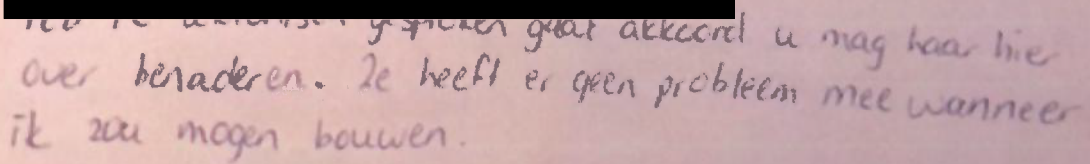 gesproken gaat akkoord u mag haar hier
over benaderen. Ze heeft er geen probleem mee wanneer
ik zou mogen bouwen.